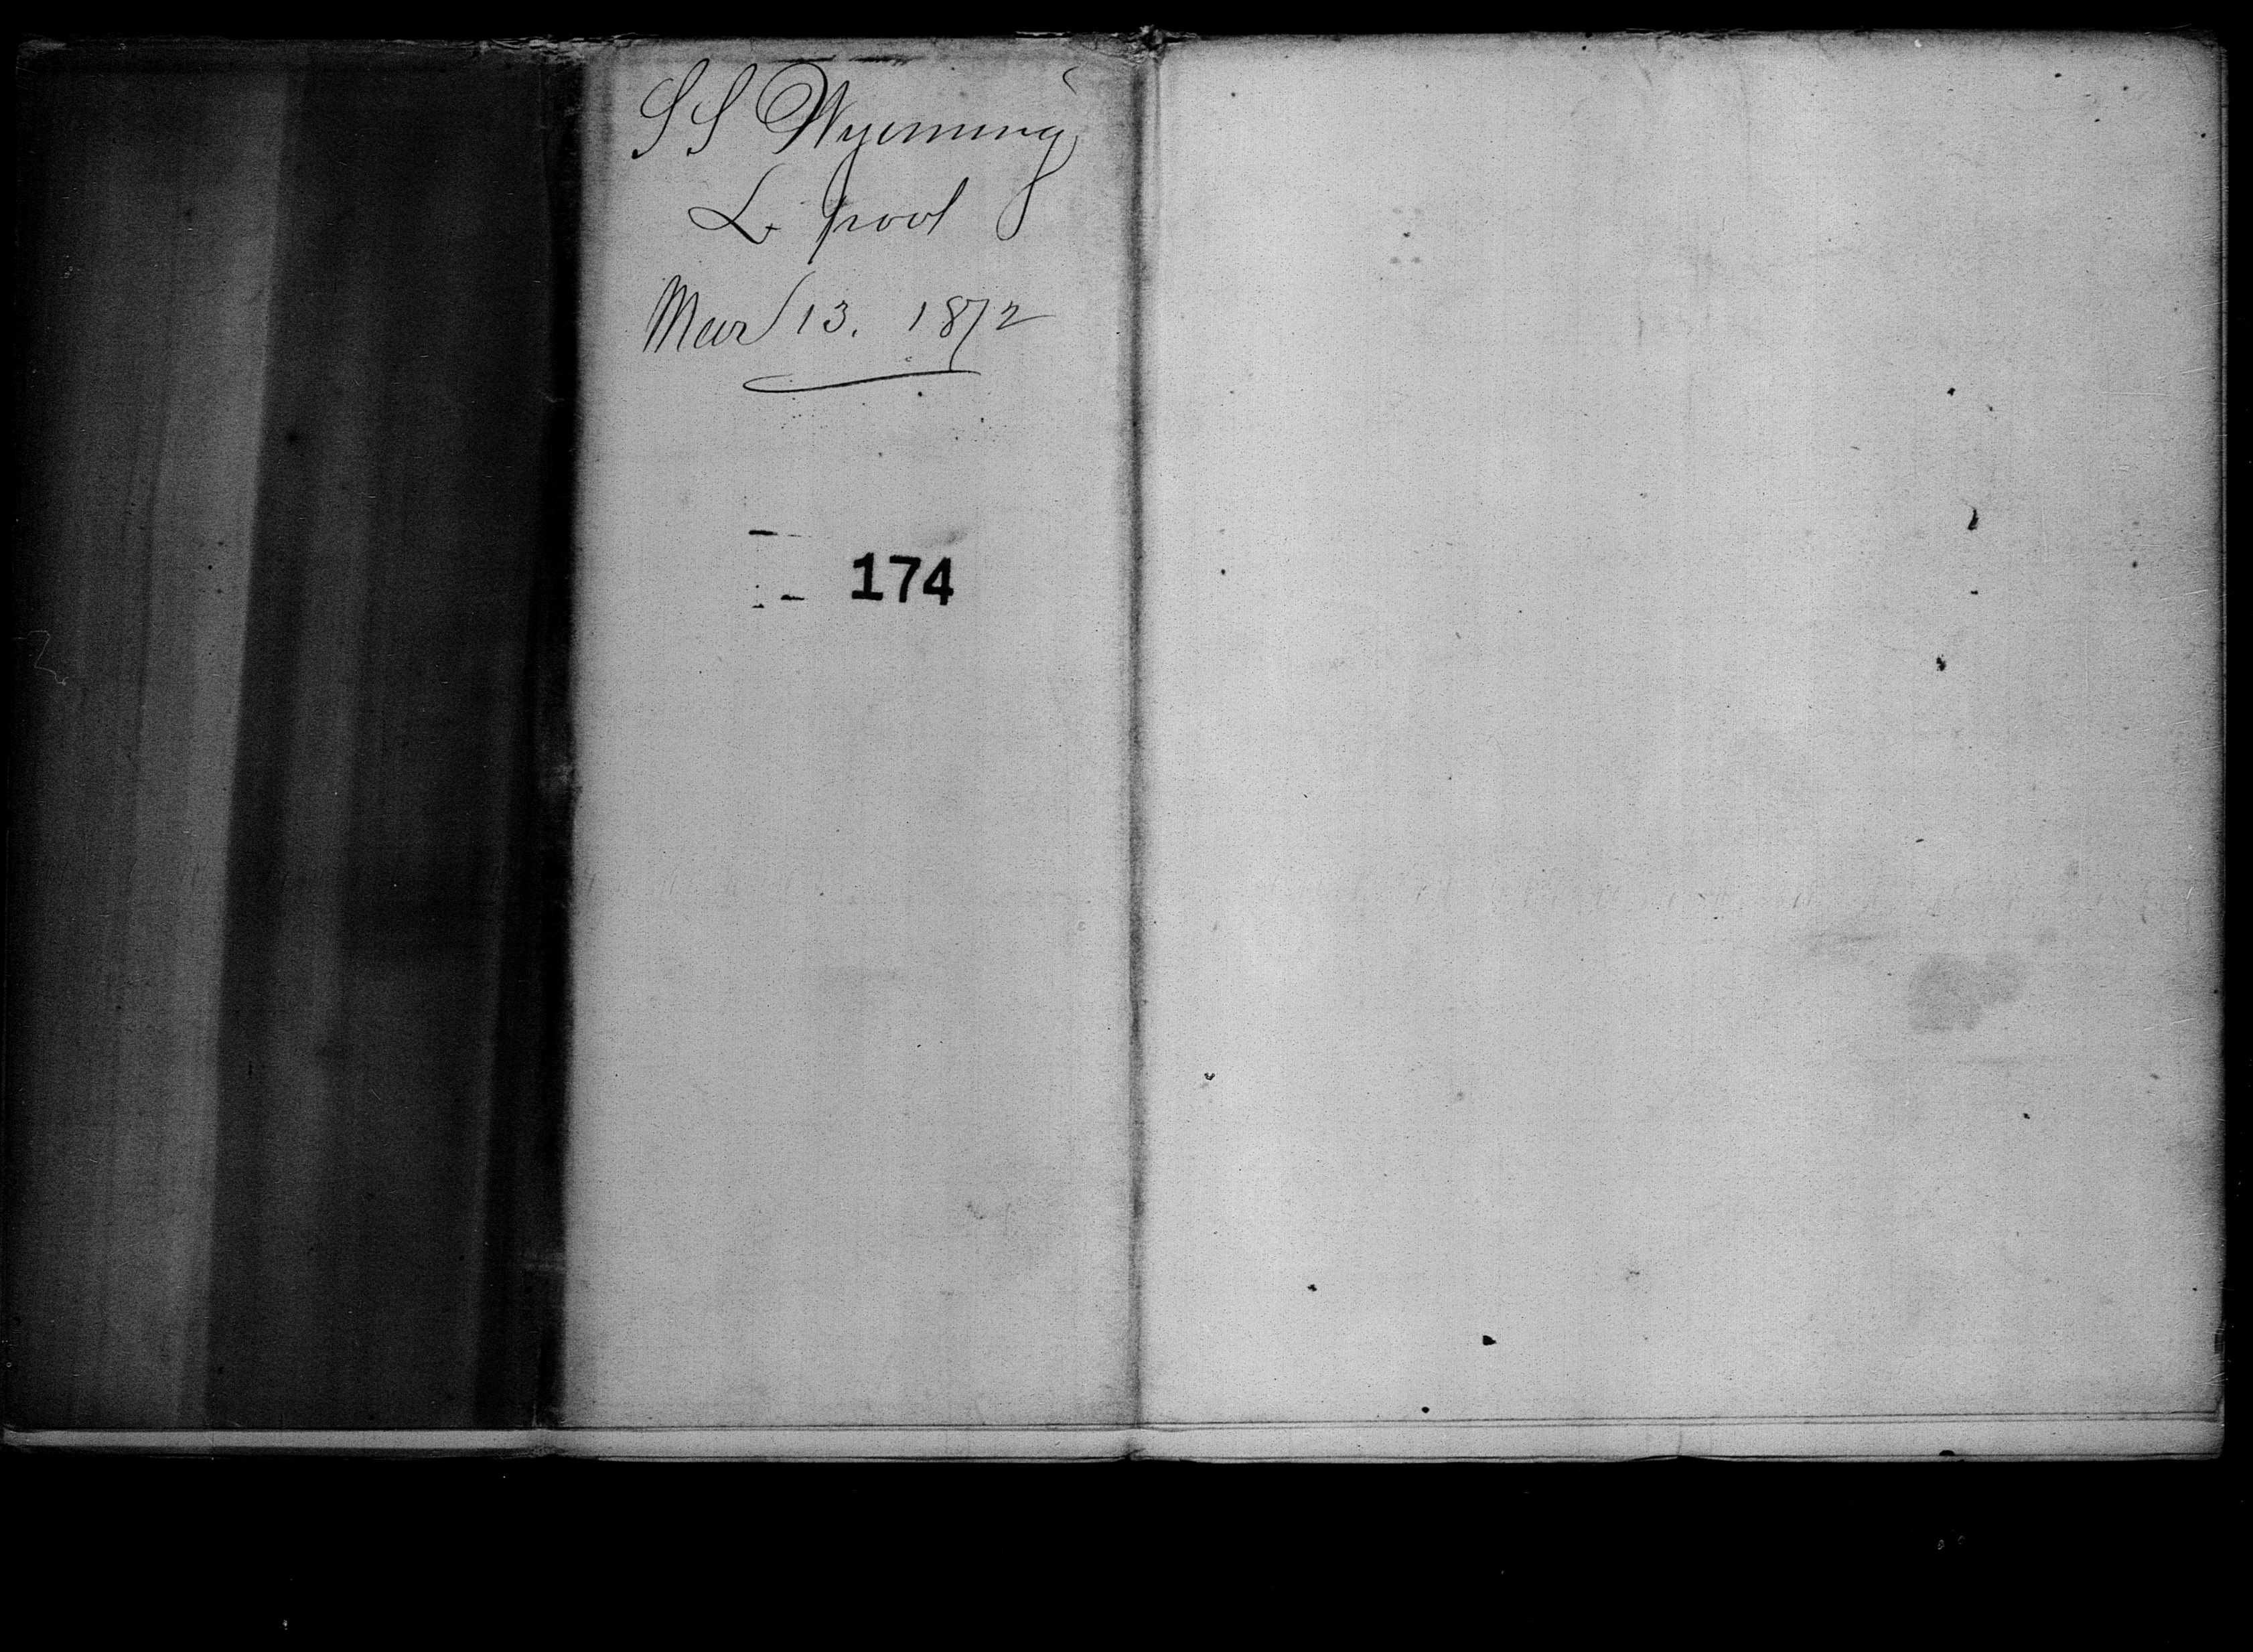 SS Wyoming
L. pool
Mar 13. 1872
174